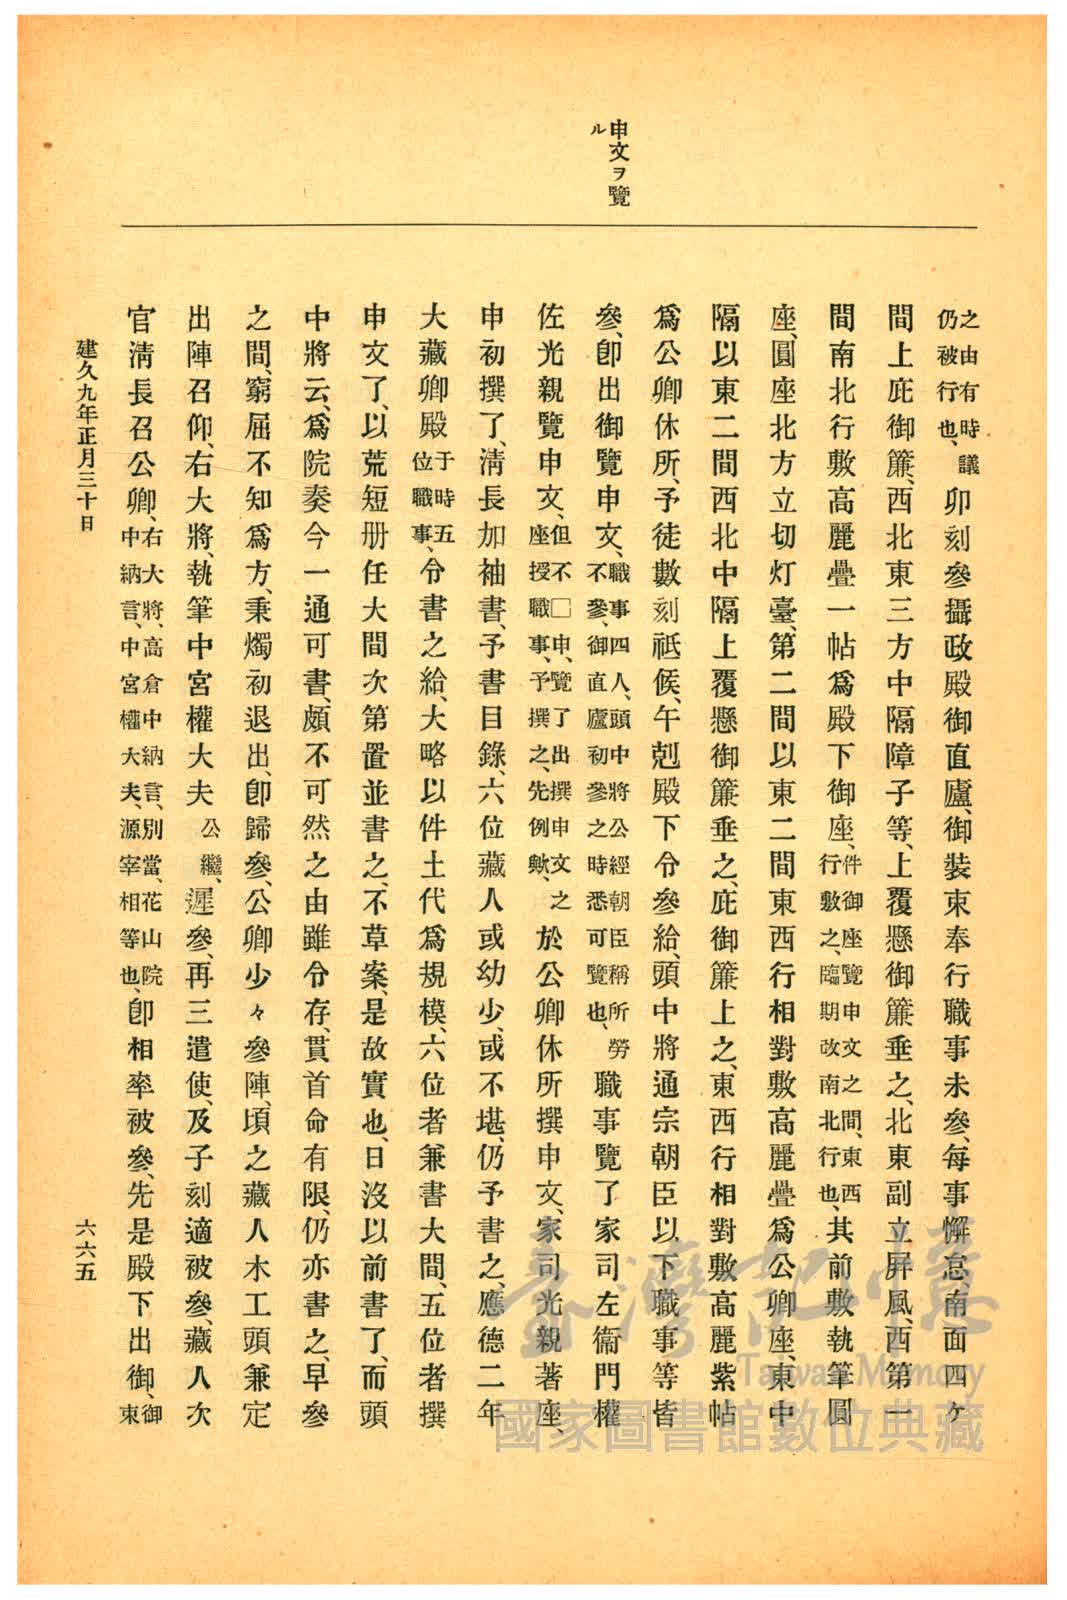 申文ヲ覽
ル
之由有時議
仍被行也、卯刻參攝政殿御直廬、御裝束奉行職事未參、每事懈怠、南面四ケ
間上庇御簾、西北東三方中隔障子等、上覆懸御簾垂之、北東副立屛風、西第一
間南北行敷高麗疊一帖爲殿下御座、件御座覽申文之間、東西行敷之、臨期改南北行也、其前敷執筆圓
座、圓座北方立切灯臺、第二間以東二間東西行相對敷高麗疊爲公卿座、東中
隔以東二間西北中隔上覆懸御簾垂之、庇御簾上之、東西行相對敷高麗紫帖
爲公卿休所、予徒數刻祗候、午剋殿下令參給、頭中將通宗朝臣以下職事等皆
參、卽出御覽申文、職事四人、頭中將公經朝臣稱所勞不參、御直廬初參之時悉可覽也、職事覽了家司左衞門權
佐光親覽申文、但不□申、覽了出撰申文之座授職事、予撰之、先例歟、於公卿休所撰申文、家司光親著座、
申初撰了、淸長加袖書、予書目錄、六位藏人或幼少、或不堪、仍予書之、應德二年
大藏卿殿于時五位職事、令書之給、大略以件土代爲規模、六位者兼書大間、五位者撰
申文了、以荒短册任大間次第置並書之、不草案、是故實也、日沒以前書了、而頭
中將云、爲院奏今一通可書、頗不可然之由雖令存、貫首命有限、仍亦書之、早參
之間、窮屈不知爲方、秉燭初退出、卽歸參、公卿少々參陣、頃之藏人木工頭兼定
出陣召仰、右大將、執筆中宮權大夫公繼、遲參、再三遣使、及子刻適被參、藏人次
官淸長召公卿、右大將、高倉中納言、別當、花山院中納言、中宮權大夫、源宰相等也、卽相率被參、先是殿下出御、御東
建久九年正月三十日
六六五
臺灣記憶
Taiwan Memory
國家圖書館數位典藏